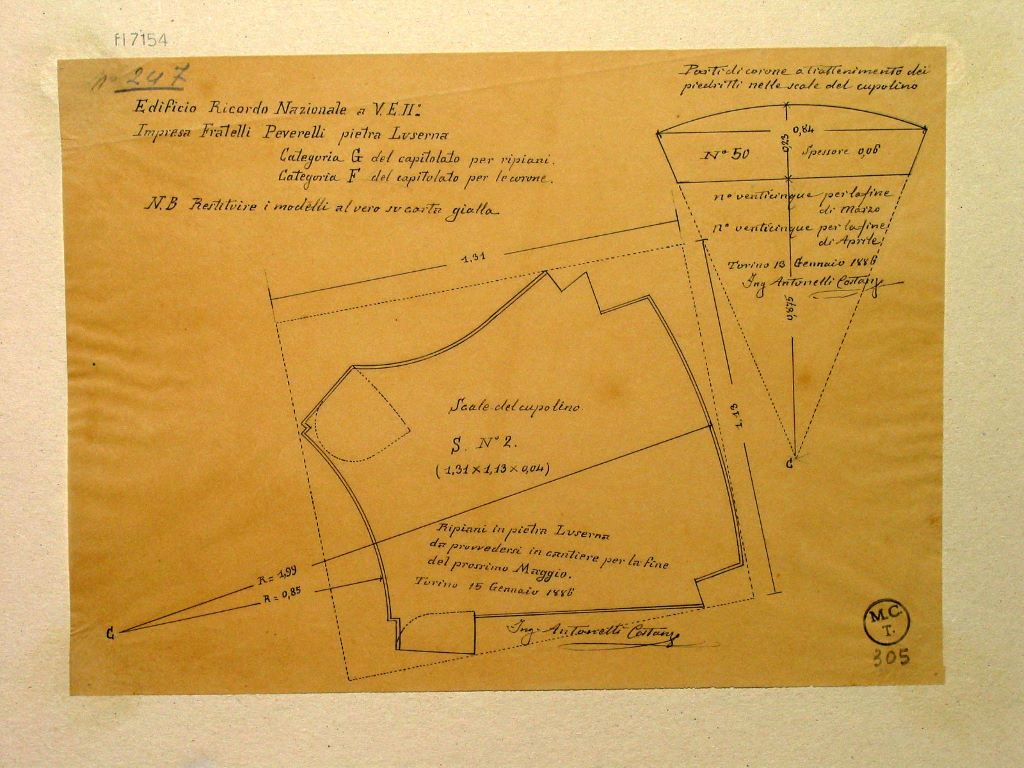 FI 7154
N° 247
Edificio Ricordo Nazionale a V.E.II:
Impresa Fratelli Peverelli pietra Luserna
Categoria G del capitolato per ripiani.
Categoria F del capitolato per le corone.
N.B Restituire i modelli al vero su carta gialla
Parti di corone a trattenimento dei
piedritti nelle scale del cupolino
0,84
0,23
N° 50 Spessore 0,06
n° venticinque per la fine
di Marzo
n° venticinque per la fine
di Aprile
Torino 13 Gennaio 1886
Ing Antonelli Costanzo
0,875
C
1,31
1,13
Scale del cupolino
S. N° 2.
(1,31 x 1,13 x 0,04)
Ripiani in pietra Luserna
da provvedersi in cantiere per la fine
del prossimo Maggio.
Torino 15 Gennaio 1886
Ing. Antonelli Costanzo
R = 1,99
R = 0,85
C
M.C.
T.
305